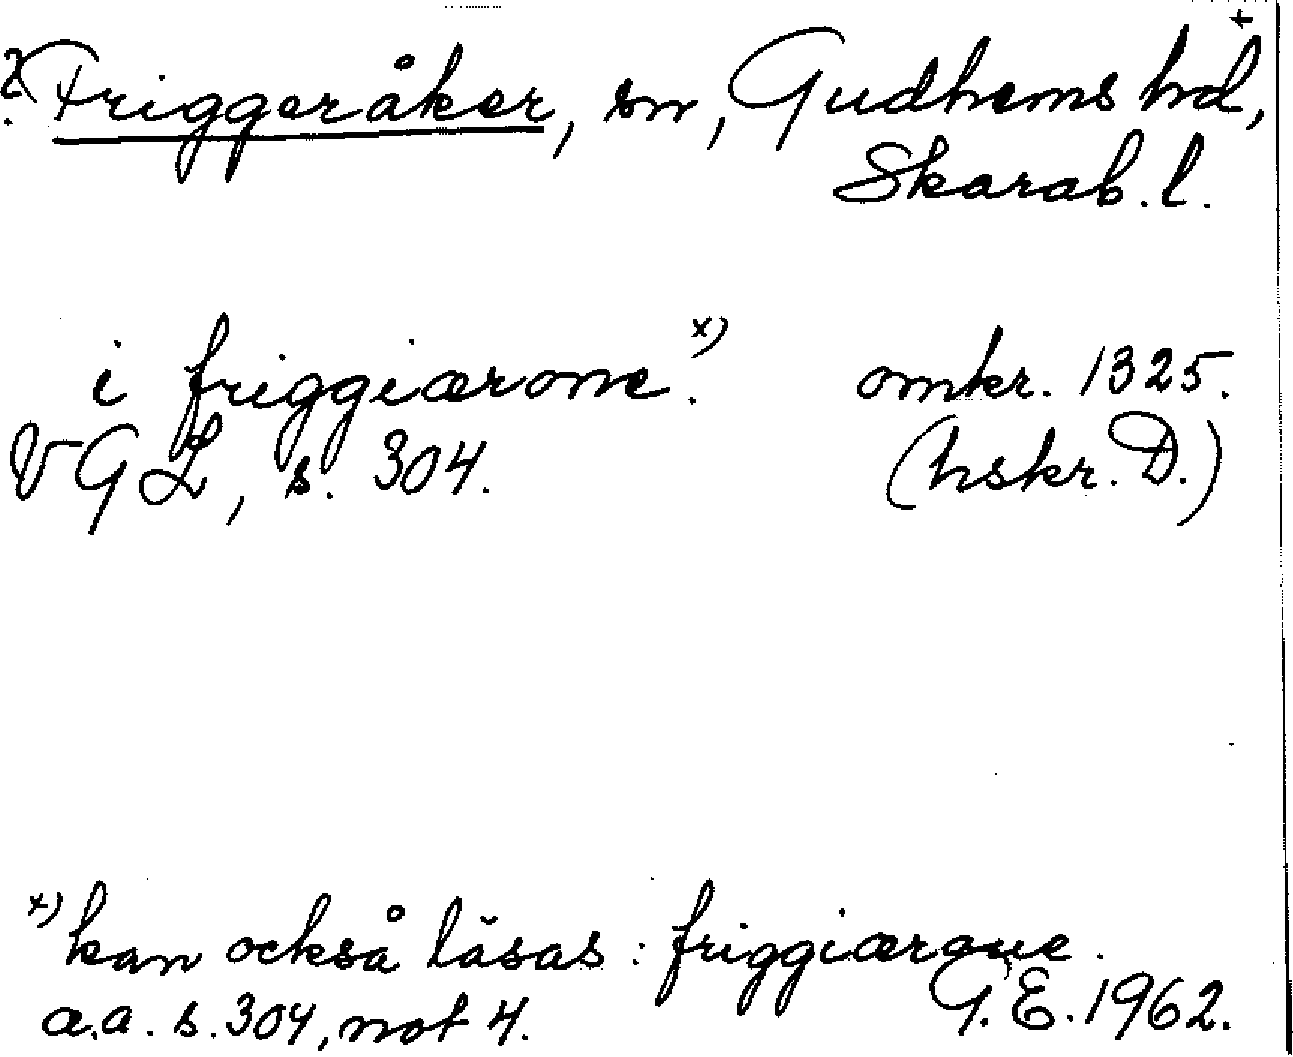 ? Friggeråker, sn, Gudhems hd, +
Skarab. l.
i friggiærone. x) omkr. 1325.
VGL, s. 304. (hskr. D.)
x) kan också läsas: friggiæraue.
a.a. s. 304, not 4. G. E. 1962.